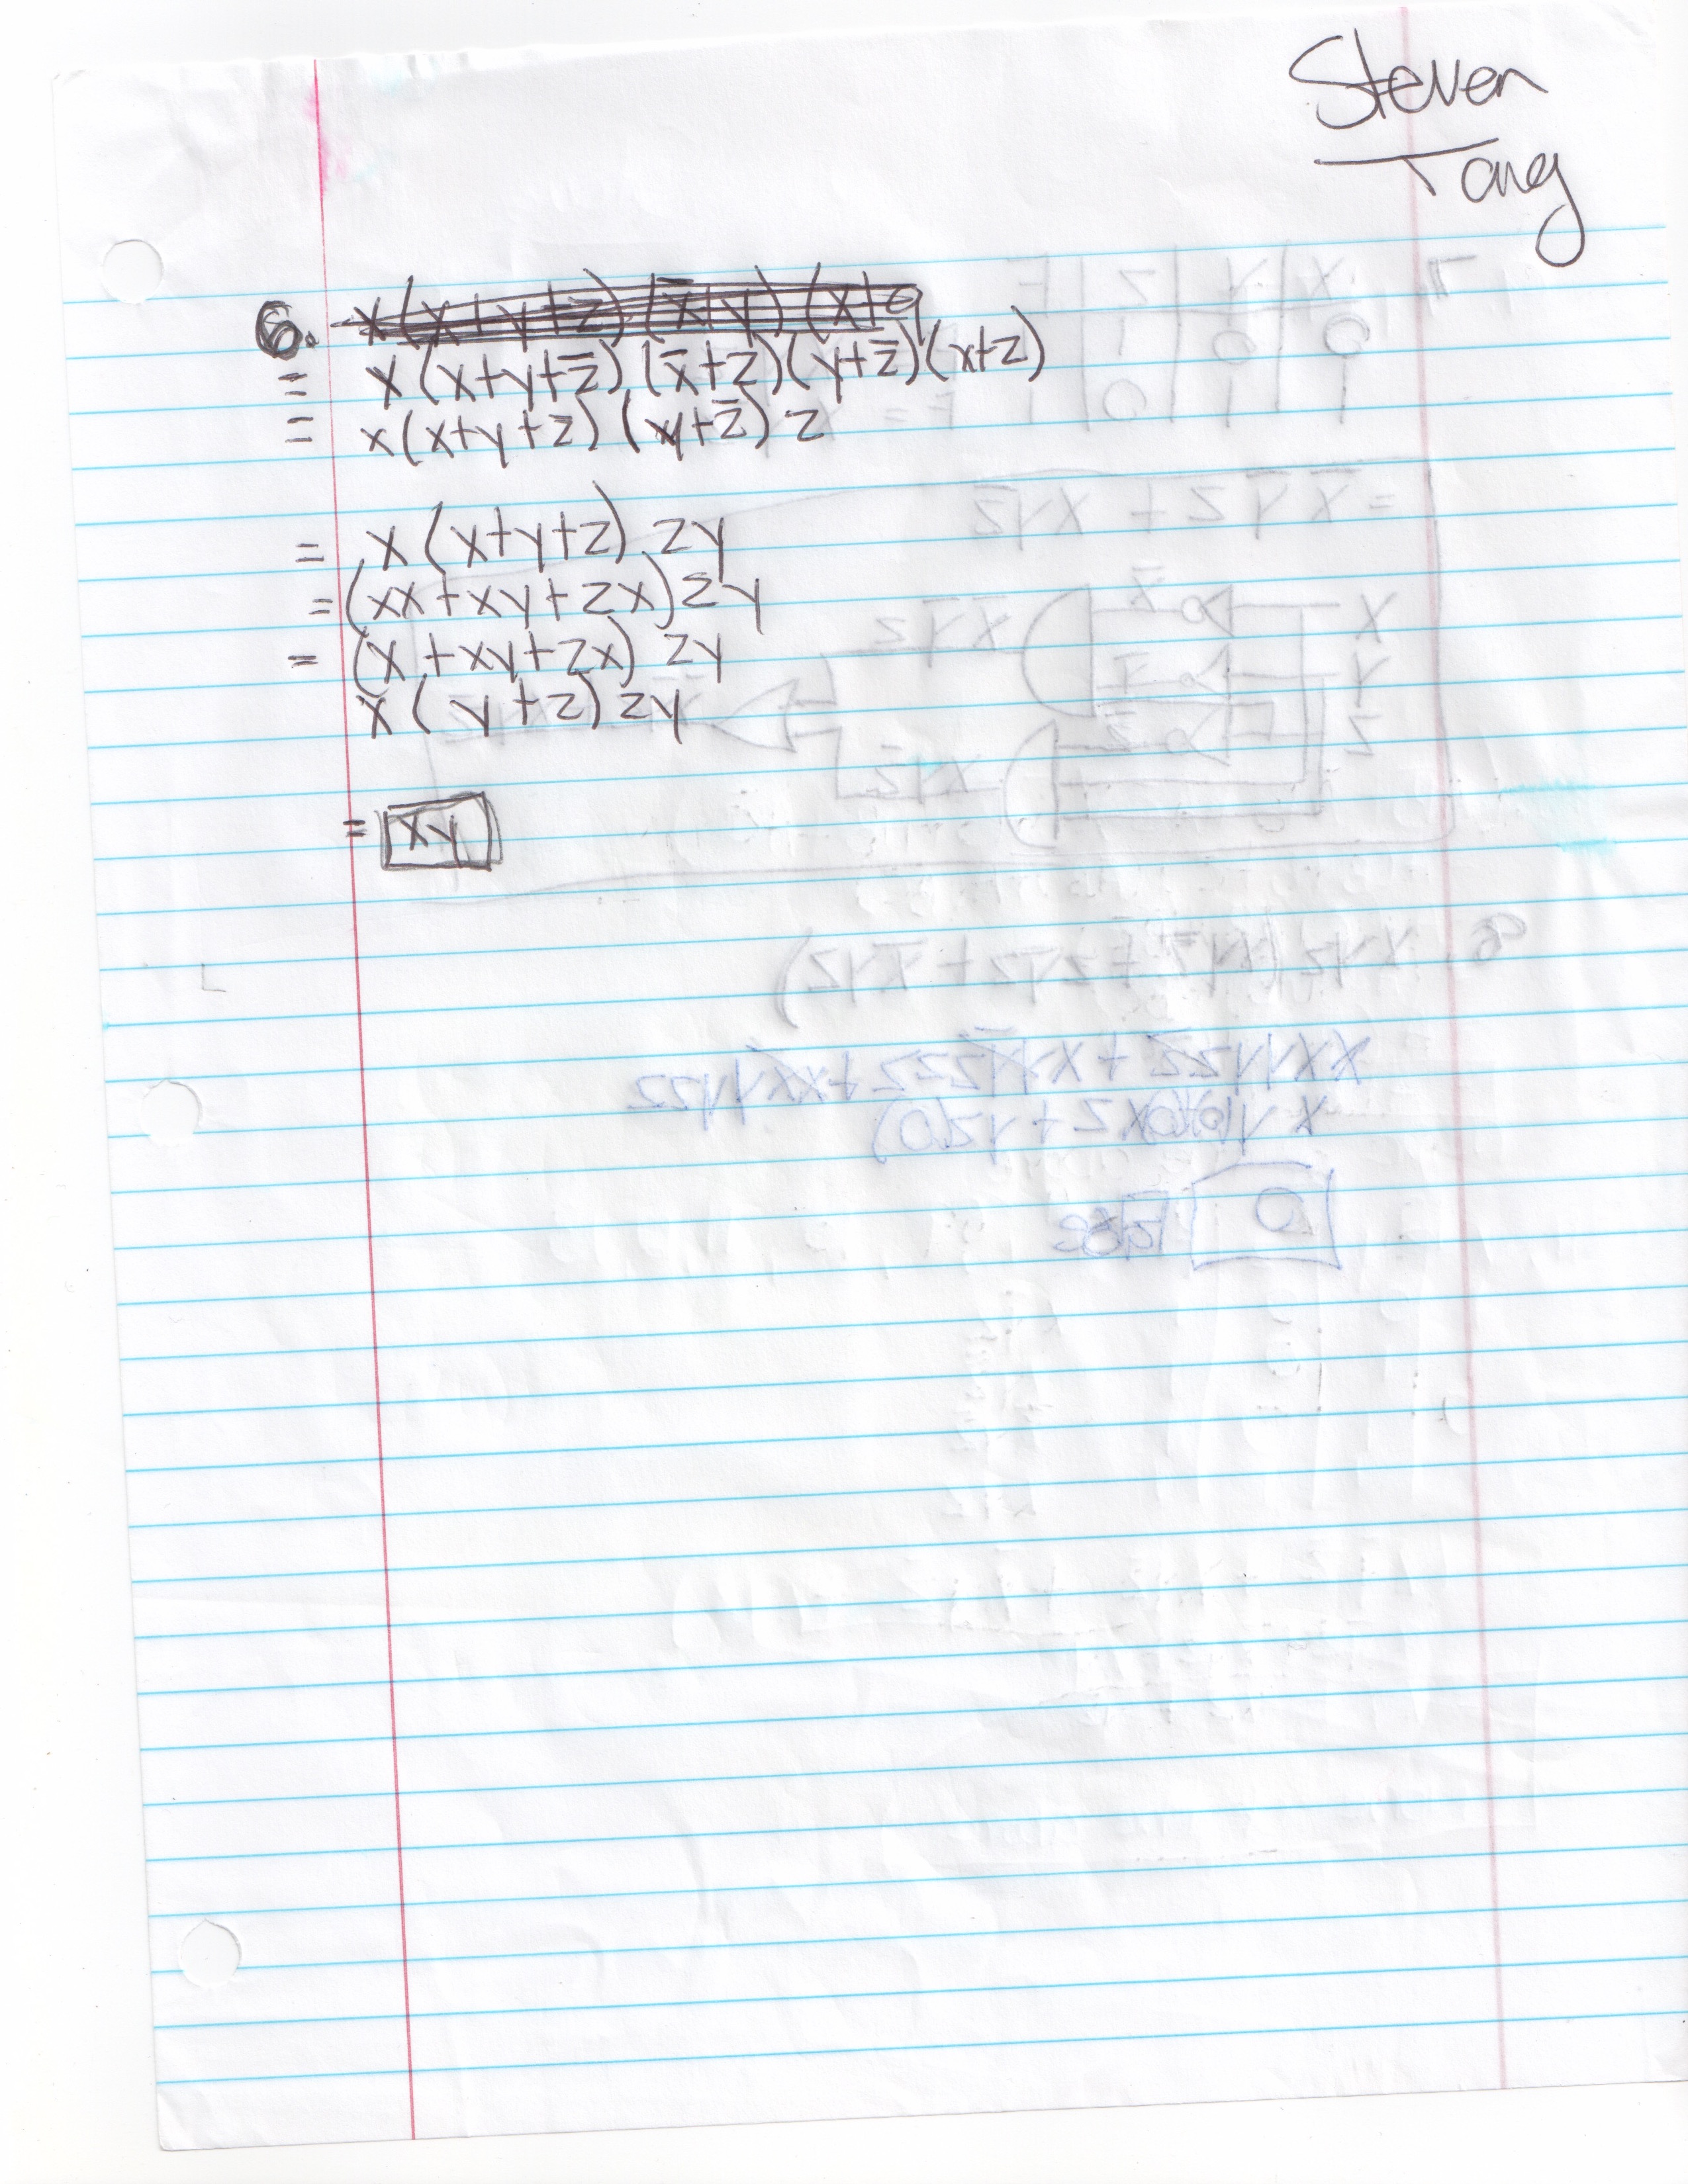 Steven
Tang
6. x(x+y+z̅)(x̅+y)(x+
= x(x+y+z̅)(x̅+z)(y+z̅)(x+z)
= x(x+y+z̅)(y+z̅)z
= x(x+y+z)zy
=(xx+xy+zx)zy
= (x+xy+zx)zy
x(y+z)zy
= xy